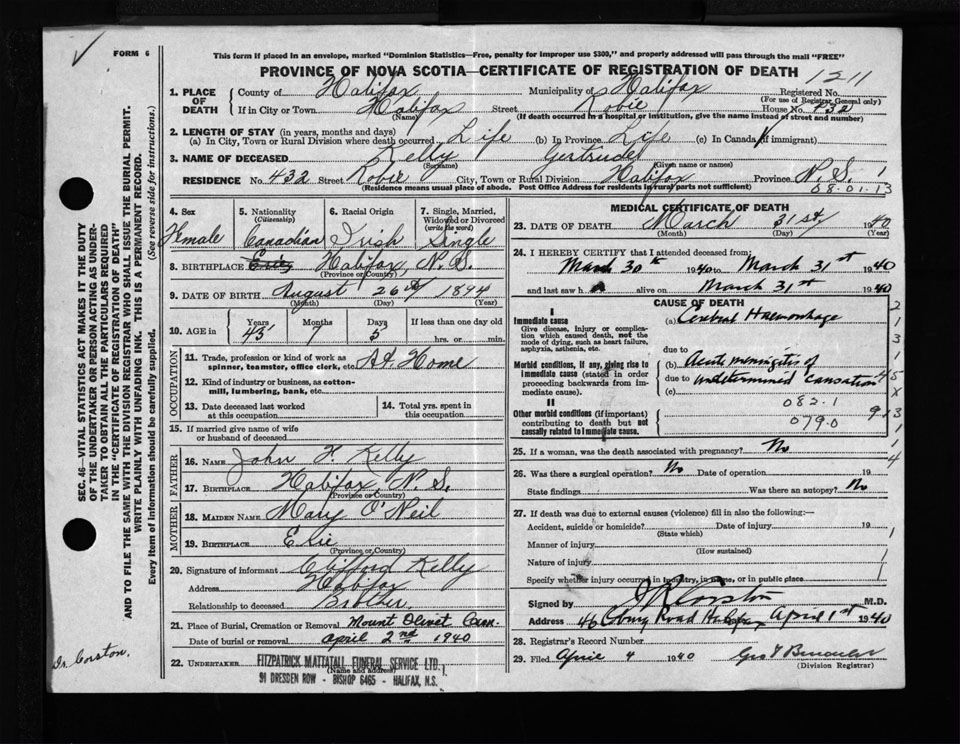 FORM 6
This form if placed in an envelope, marked "Dominion Statistics—Free, penalty for improper use $300," and properly addressed will pass through the mail "FREE"
PROVINCE OF NOVA SCOTIA—CERTIFICATE OF REGISTRATION OF DEATH 1211
1. PLACE OF DEATH County of Halifax Municipality of Halifax Registered No.
(For use of Registrar General only)
If in City or Town Halifax Street Robie House No. 432
(Name) (If death occurred in a hospital or institution, give the name instead of street and number)
2. LENGTH OF STAY (in years, months and days)
(a) In City, Town or Rural Division where death occurred Life (b) In Province Life (c) In Canada (if immigrant)
3. NAME OF DECEASED Kelly Gertrude
(Surname) (Given name or names)
RESIDENCE No. 432 Street Robie City, Town or Rural Division Halifax Province N.S. 1
(Residence means usual place of abode. Post Office Address for residents in rural parts not sufficient) 08.01.13
4. Sex 5. Nationality (Citizenship) 6. Racial Origin 7. Single, Married, Widowed or Divorced (write the word)
Female Canadian Irish Single
8. BIRTHPLACE Halifax, N.S.
(Province or Country)
9. DATE OF BIRTH August 26th 1894
(Month) (Day) (Year)
10. AGE in Years Months Days If less than one day old
43 7 5 hrs. or min.
OCCUPATION
11. Trade, profession or kind of work as spinner, teamster, office clerk, etc. At Home
12. Kind of industry or business, as cotton-mill, lumbering, bank, etc.
13. Date deceased last worked at this occupation
14. Total yrs. spent in this occupation
15. If married give name of wife or husband of deceased
FATHER
16. Name John F. Kelly
17. Birthplace Halifax, N.S.
(Province or Country)
MOTHER
18. Maiden Name Mary O'Neil
19. Birthplace
(Province or Country)
20. Signature of informant Clifford Kelly
Address Halifax
Relationship to deceased Brother
21. Place of Burial, Cremation or Removal Mount Olivet Cem.
Date of burial or removal April 2nd 1940
22. UNDERTAKER FITZPATRICK MATTATALL FUNERAL SERVICE LTD.
(Name and address)
91 DRESDEN ROW - BISHOP 6465 - HALIFAX, N.S.
MEDICAL CERTIFICATE OF DEATH
23. DATE OF DEATH March 31st 1940
(Month) (Day) (Year)
24. I HEREBY CERTIFY that I attended deceased from
March 30th 1940 to March 31st 1940
and last saw h alive on March 31st 1940
CAUSE OF DEATH
I
Immediate cause (a) Cerebral Haemorrhage
Give disease, injury or complication which caused death, not the mode of dying, such as heart failure, asphyxia, asthenia, etc.
due to
Morbid conditions, if any, giving rise to immediate cause (stated in order proceeding backwards from immediate cause).
(b) Acute meningitis of
due to undetermined causation
(c)
082.1
II
Other morbid conditions (if important) contributing to death but not causally related to immediate cause.
079.0
25. If a woman, was the death associated with pregnancy? No
26. Was there a surgical operation? No Date of operation 19
State findings Was there an autopsy? No
27. If death was due to external causes (violence) fill in also the following:—
Accident, suicide or homicide? Date of injury 19
(State which)
Manner of injury
(How sustained)
Nature of injury
Specify whether injury occurred in industry, in home, or in public place
Signed by Corston M.D.
Address 46 Coburg Road Halifax April 1st 1940
28. Registrar's Record Number
29. Filed April 4 1940
(Division Registrar)
SEC. 46—VITAL STATISTICS ACT MAKES IT THE DUTY
OF THE UNDERTAKER OR PERSON ACTING AS UNDERTAKER TO OBTAIN ALL THE PARTICULARS REQUIRED
IN THE "CERTIFICATE OF REGISTRATION OF DEATH"
AND TO FILE THE SAME WITH THE DIVISION REGISTRAR WHO SHALL ISSUE THE BURIAL PERMIT.
WRITE PLAINLY WITH UNFADING INK. THIS IS A PERMANENT RECORD.
Every item of Information should be carefully supplied. (See reverse side for instructions.)
Dr. Corston.